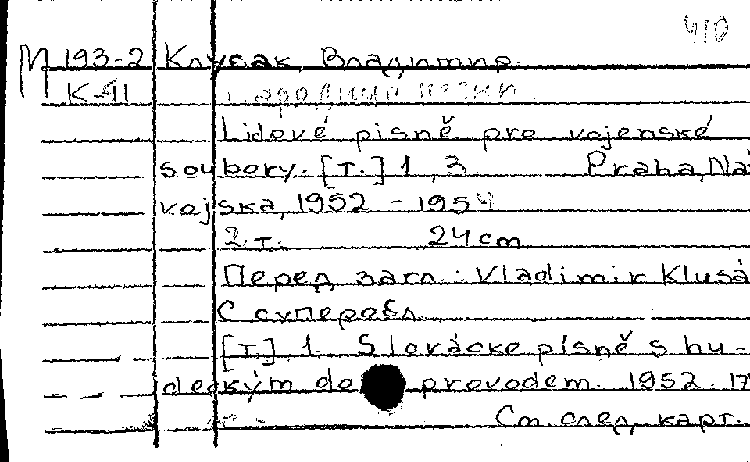 410
М 193-2 Клусак, Владимир.
К-41
Народные песни
Lidové písně pro vojenské
soubory. [Т.] 1, 3 Praha, Na
vojska, 1952 - 1954
2 т. 24 cm
Перед загл.: Vladimír Klusá
С суперобл.
[Т.] 1. Slovácke písně s hu-
deckým do provodem. 1952. 17
См. след. карт.